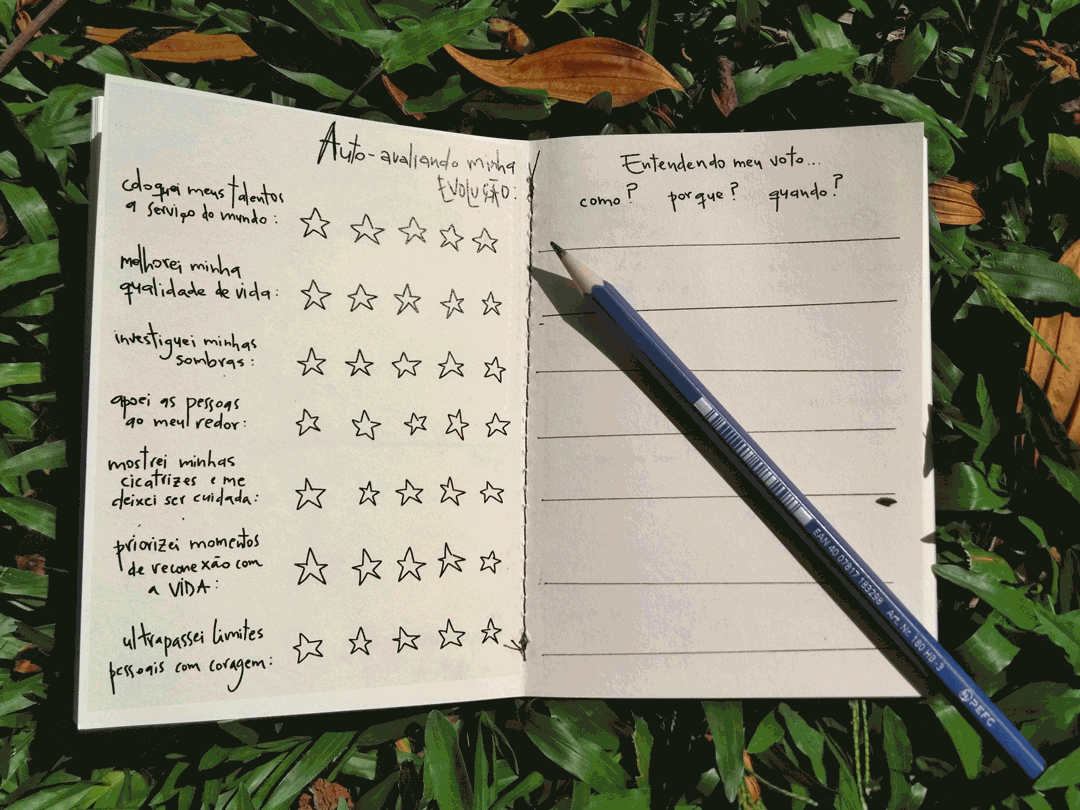 Auto-avaliando minha
EVOLUÇÃO:
coloquei meus talentos
a serviço do mundo:
melhorei minha
qualidade de vida:
investiguei minhas
sombras:
apoei as pessoas
ao meu redor:
mostrei minhas
cicatrizes e me
deixei ser cuidada:
priorizei momentos
de reconexão com
a VIDA:
ultrapassei limites
pessoais com coragem:
Entendendo meu voto...
como? porque? quando?
EAN 40 07817 183298 Art. Nr. 180 HB-3
PEFC